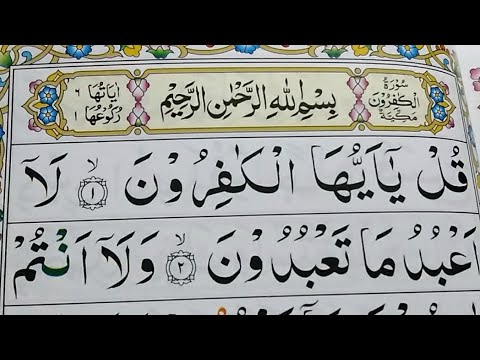 سُوْرَةُ الْكٰفِرُوْنَ مَكِّيَّةٌ
بِسْمِ اللهِ الرَّحْمٰنِ الرَّحِيْمِ
اٰيَاتُهَا ٦ رُكُوْعُهَا ١
قُلْ يٰۤاَيُّهَا الْكٰفِرُوْنَ ۙ‏ ١ لَاۤ
اَعْبُدُ مَا تَعْبُدُوْنَ ۙ‏ ٢ وَلَاۤ اَنْتُمْ